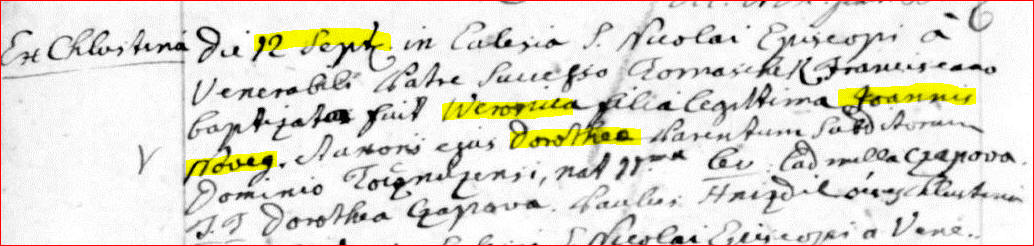 Ex Chlustina die 12 Sept. in Eclesia S. Nicolai Episcopi à
Venerabili Patre Successo Tomaschek Franciscano
baptizata fuit Weronica filia legittima Joannis
Noveg. Uxoris ejus Dorothea Parentum Subditorum
Dominio, nat 11ma Lev. Ladmilla Czapova.
T.T Dorothea Czapova. Paulus Hnizdil Chlustina
S. Nicolai Episcopi a Vene.